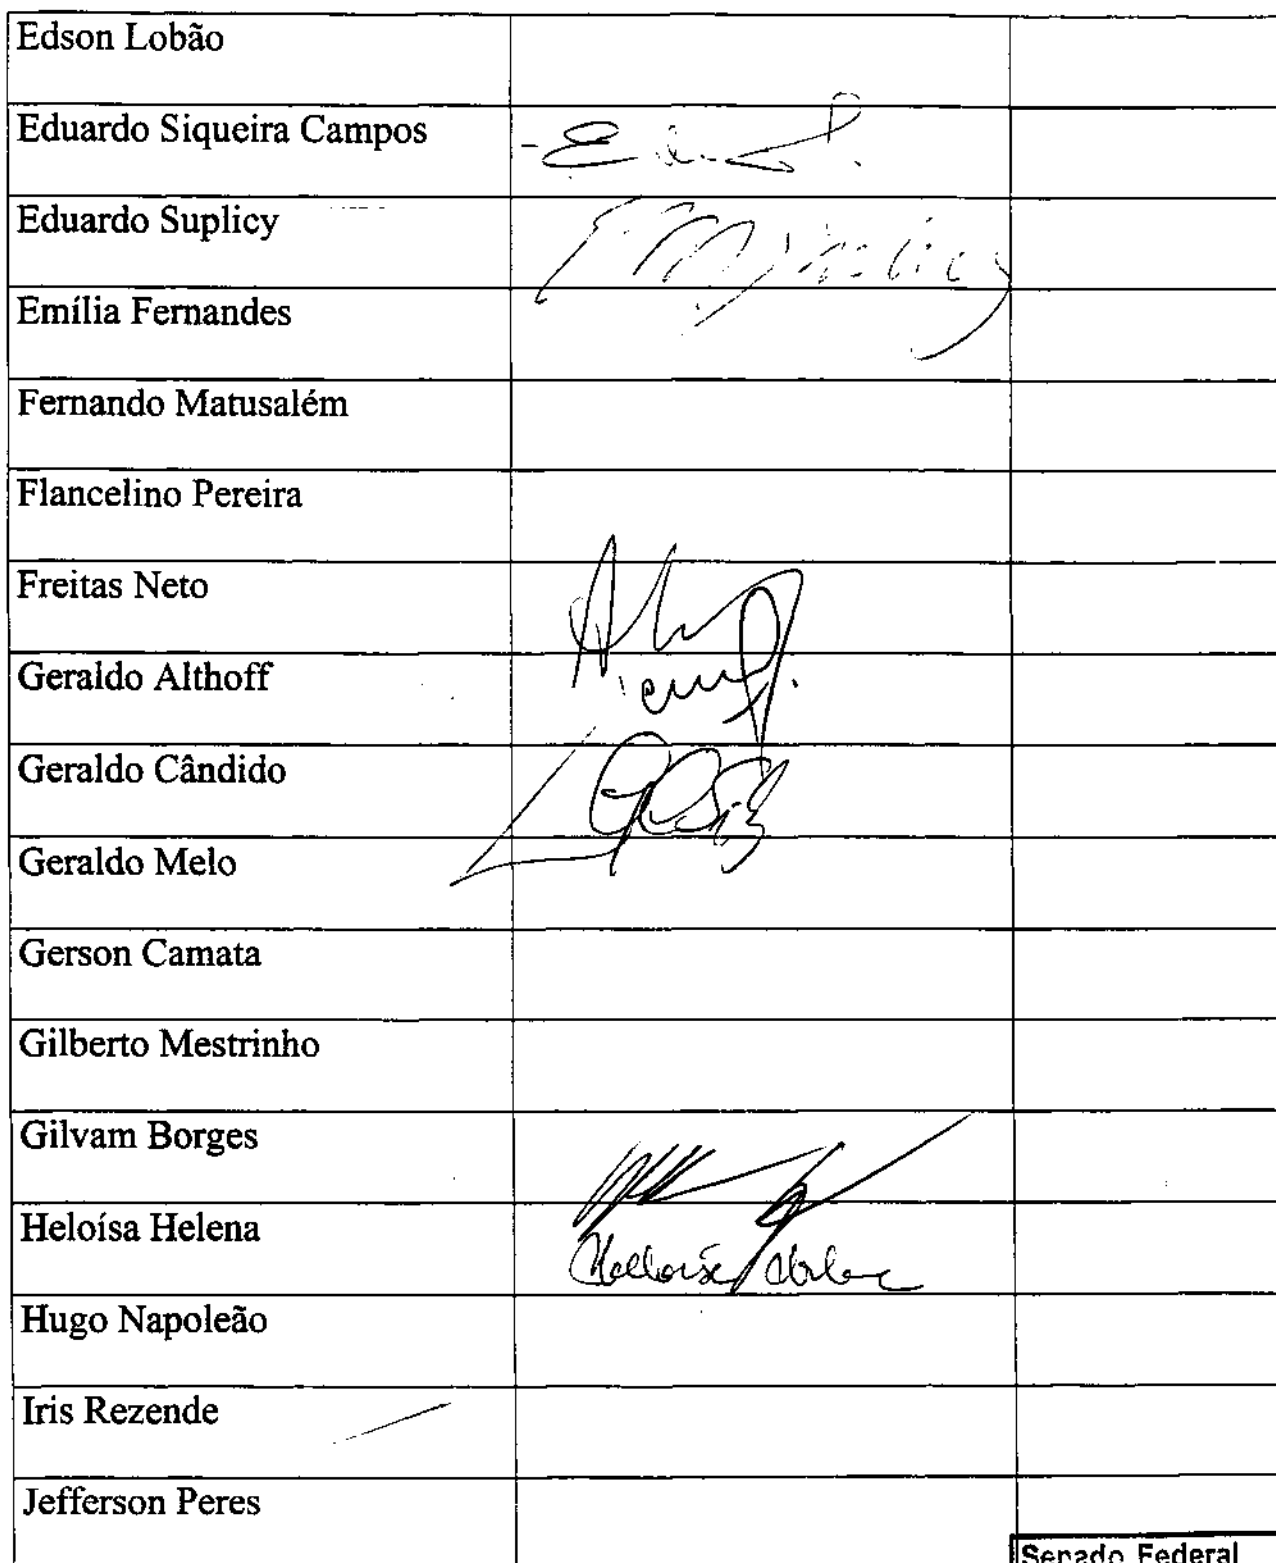 Edson Lobão
Eduardo Siqueira Campos
Eduardo Suplicy
Emília Fernandes
Fernando Matusalém
Flancelino Pereira
Freitas Neto
Geraldo Althoff
Geraldo Cândido
Geraldo Melo
Gerson Camata
Gilberto Mestrinho
Gilvam Borges
Heloísa Helena
Hugo Napoleão
Iris Rezende
Jefferson Peres
Senado Federal